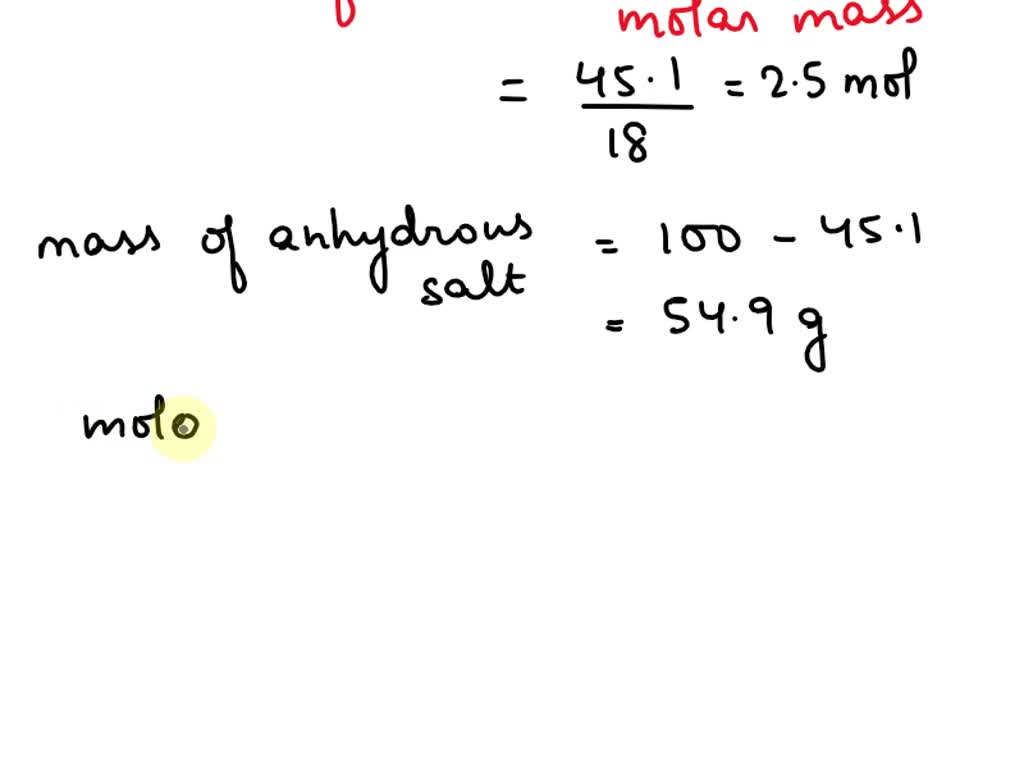 molar mass
= 45.1 / 18 = 2.5 mol
mass of anhydrous salt = 100 - 45.1
= 54.9 g
mole